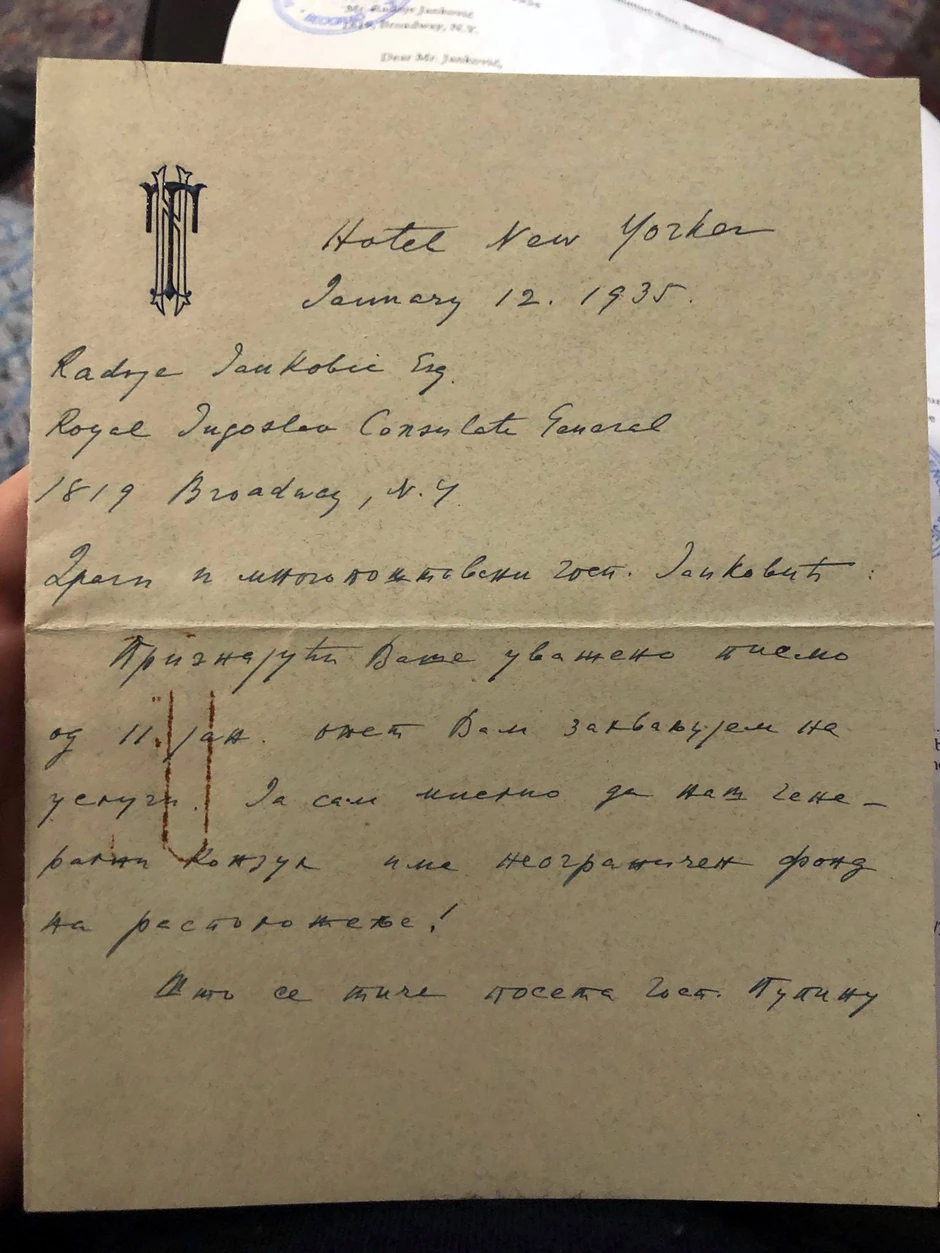 Mr. Radoje Janković
1819, Broadway, N.Y.
Dear Mr. Janković,
Hotel New Yorker
January 12. 1935.
Radoje Jankovic Esq.
Royal Jugoslav Consulate General
1819 Broadway, N.Y.
Драги и многопоштовани госп. Јанковић:
Признајући Ваше уважено писмо
од 11. јан. опет Вам захваљујем на
услузи. Ја сам мислио да наш гене-
рални Конзул има неограничен фонд
на расположење!
Што се тиче посета госп. Пупину